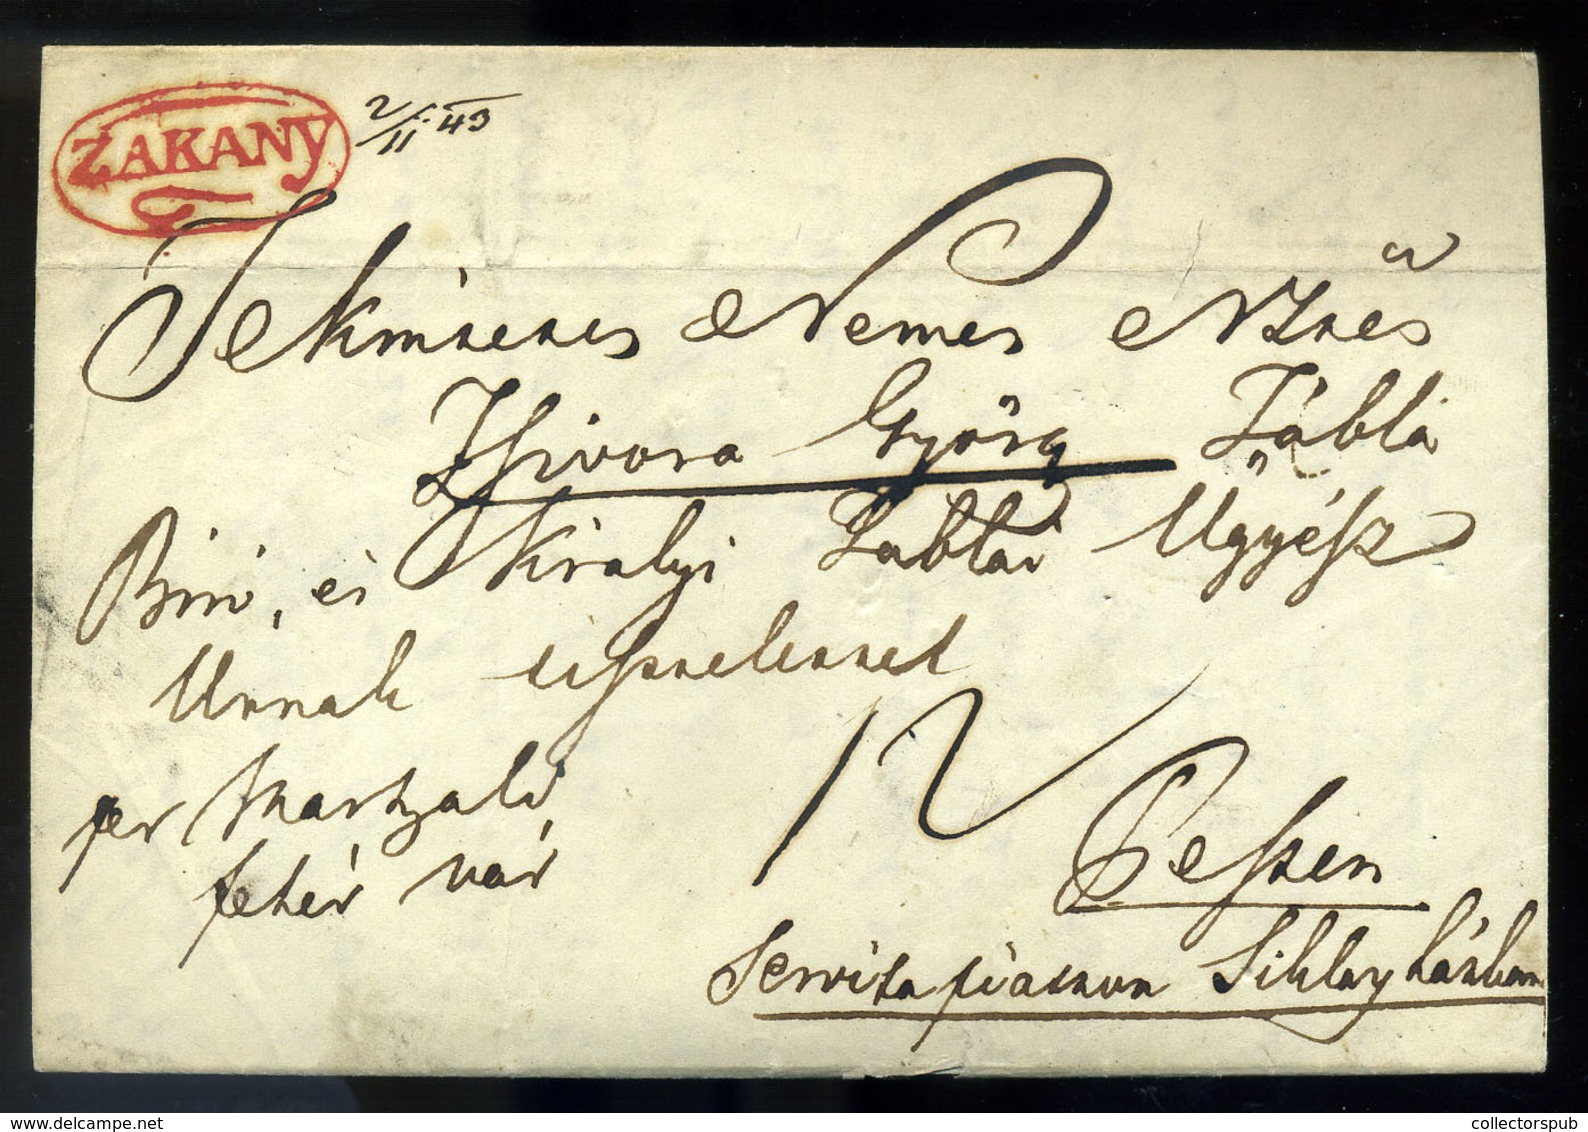 ZAKANY
2/11 43
Tekintetes Nemes Nztes
Zsivora György Tábla
Biró, és Királyi Táblai Ügyész
Urnak tisztelettel
per Martzali,
fehér vár
12
Pesten
Servita piatzon Siklay házban
www.delcampe.net
collectorspub